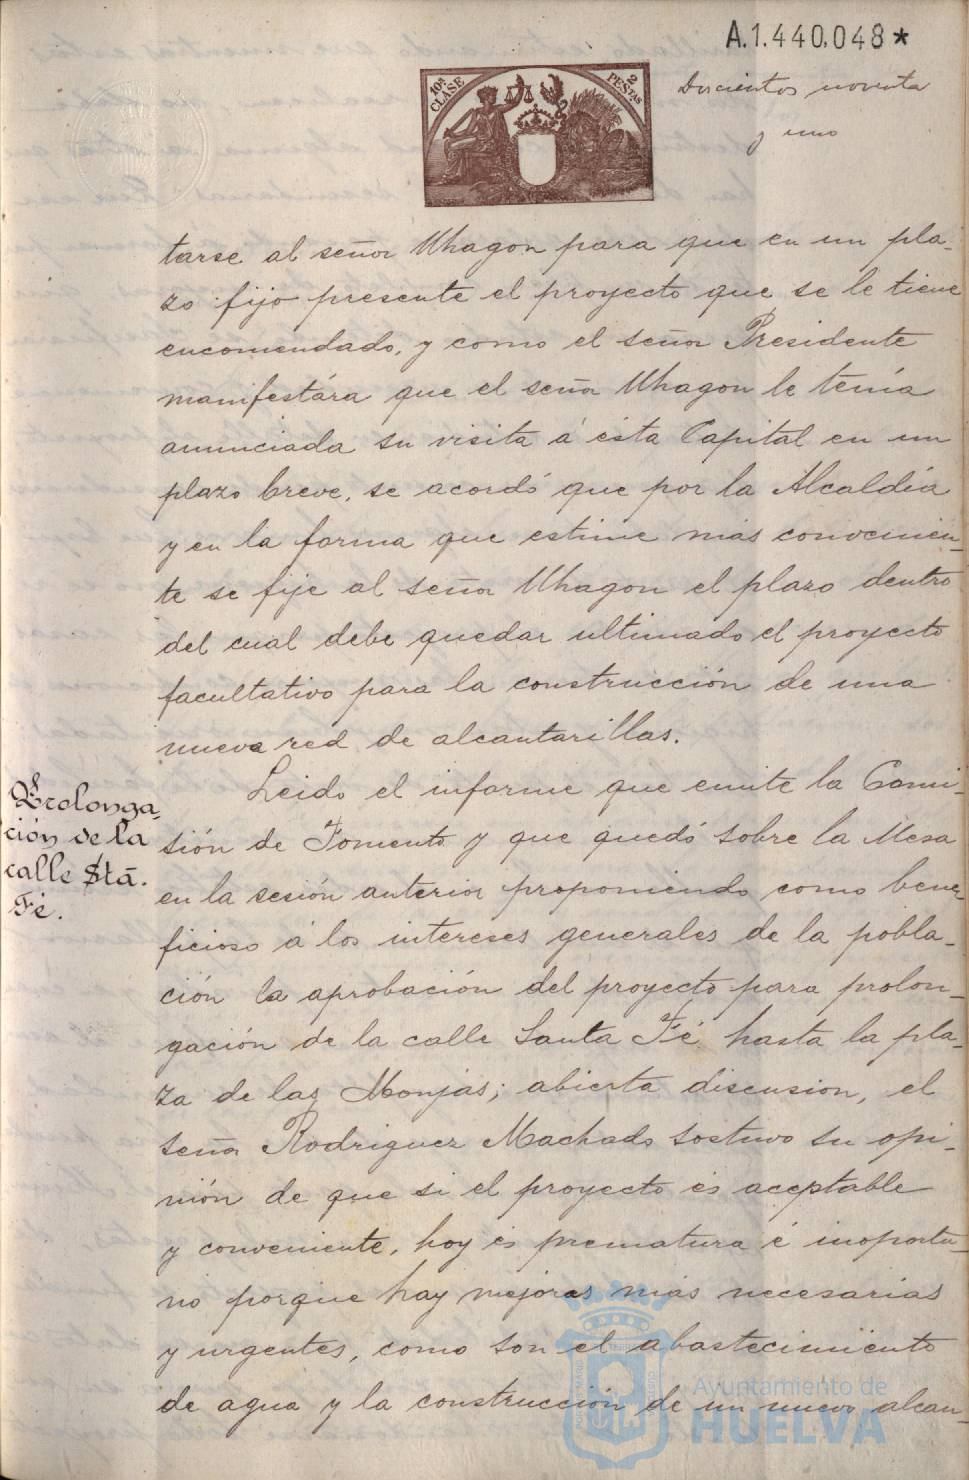 A.1.440.048*
10ª CLASE
2 PESTAS
Doscientos noventa
y uno
tarse al señor Uhagon para que en un pla-
zo fijo presente el proyecto que se le tiene
encomendado, y como el señor Presidente
manifestára que el señor Uhagon le tenía
anunciada su visita á ésta Capital en un
plazo breve, se acordó que por la Alcaldía
y en la forma que estime más convenien-
te se fije al señor Uhagon el plazo dentro
del cual debe quedar ultimado el proyecto
facultativo para la construcción de una
nueva red de alcantarillas.
Prolonga-
ción de la
calle Stã.
Fé.
Leido el informe que emite la Comi-
sión de Fomento y que quedó sobre la Mesa
en la sesión anterior proponiendo como bene-
ficioso á los intereses generales de la pobla-
ción la aprobación del proyecto para prolon-
gación de la calle Santa Fé hasta la pla-
za de las Monjas; abierta discusion, el
señor Rodriguez Machado sostuvo su opi-
nión de que si el proyecto es aceptable
y conveniente, hoy és prematura é inoportu-
no porque hay mejoras más necesarias
y urgentes, como son el abastecimiento
de agua y la construcción de un nuevo alcan-
Ayuntamiento de
HUELVA